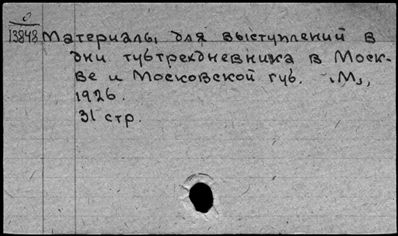 0
13848 Материалы для выступлений в
дни тубтрехдневника в Моск-
ве и Московской губ. "М.",
1926.
31 стр.